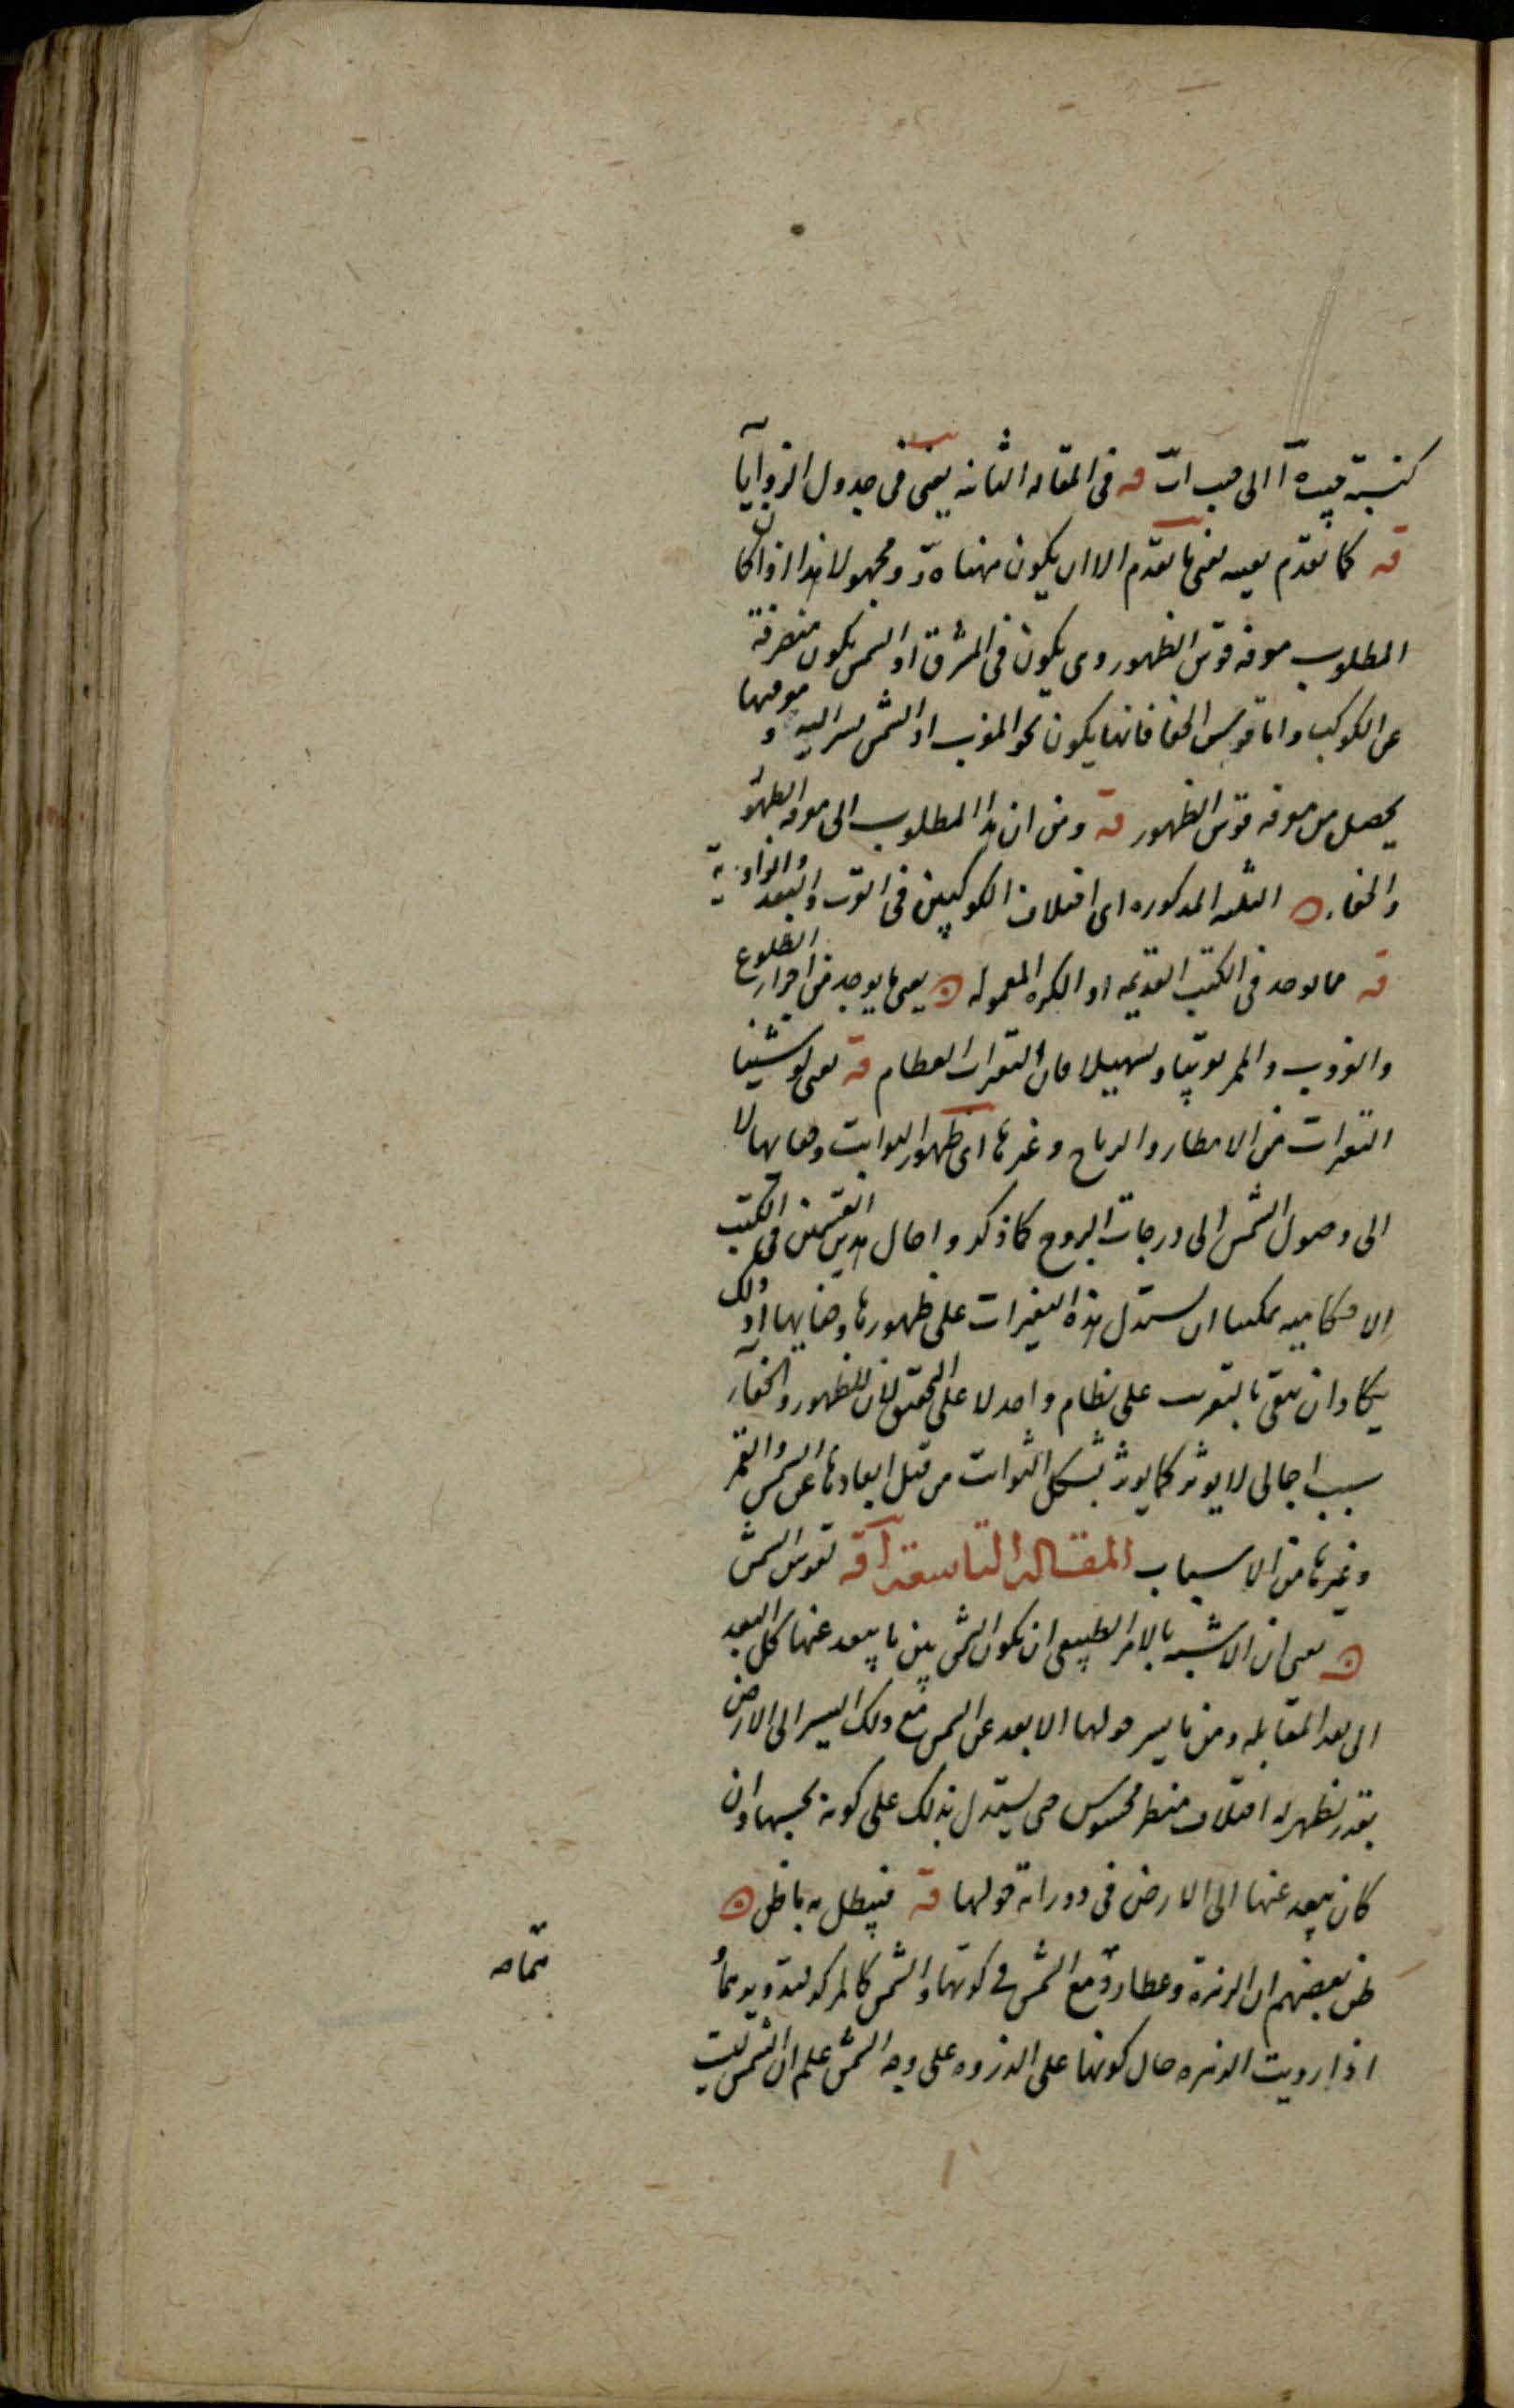 كنسبة جيب ه آ الى جيب ات قه فى المقاله الثانيه يعنى فى جدول الزوايا
قه كما تقدم بعينه يعنى ما تقدم الا ان يكون مهنا ه د مجهولا هذا اذا كان
المطلوب معرفه قوس الظهور وهى يكون فى المشرق اذ الشمس يكون منصرفة
عن الكوكب واما قوس الخفا فانها يكون نحو المغرب اذ الشمس يسير اليه ومعرفتها
يحصل من معرفه قوس الظهور قه ومن ان هذا المطلوب الى معرفه الظهور
والخفاء ه الثلثه المذكوره اى اختلاف الكوكبين فى القرب والبعد والزاوية
قه مما يوجد فى الكتب القديمه او الكره المعموله ه يعنى ما يوجد من اجزاء الطلوع
والغروب والممر توقيتا وتسهيلا فان التغيرات العظام قه يعنى لو شيئا
التغيرات من الامطار والرياح وغيرها اى ظهور الثوابت وخفائها لا
الى وصول الشمس الى درجات البروج كما ذكر واحال هذين القسمين فى الكتب
الاحكاميه يمكننا ان يستدل بهذه التغيرات على ظهورها وخفائها اذ ذلك
يكاد ان يبقى بالتقريب على نظام واحد لا على التحقيق لان للظهور والخفآء
سبب اجمالى لا يوثر كما يوثر تشكل الثوابت من قبل ابعادها عن الشمس والقمر
وغيرها من الاسباب المقاله التاسعة آ قه تقوس الشمس
ه يعنى ان الاشبه بالامر الطبيعى ان يكون الشمس بين ما يبعد عنها كل البعد
الى بعد المقابله ومن ما يسير حولها الا بعد عن الشمس مع ذلك اليسير الى الارض
بقدر يظهر له اختلاف منظر محسوس حتى يستدل بذلك على كونه تحتها وان
كان يبعد عنها الى الارض فى دورانه حولها قه فيبطل به ما ظن ه
ظن بعضهم ان الزهرة وعطارد مع الشمس فى كرتها والشمس كالمركز لتدويريهما
اذا رويت الزهره حال كونها على الذروه على وجه الشمس علم ان الشمس ليست